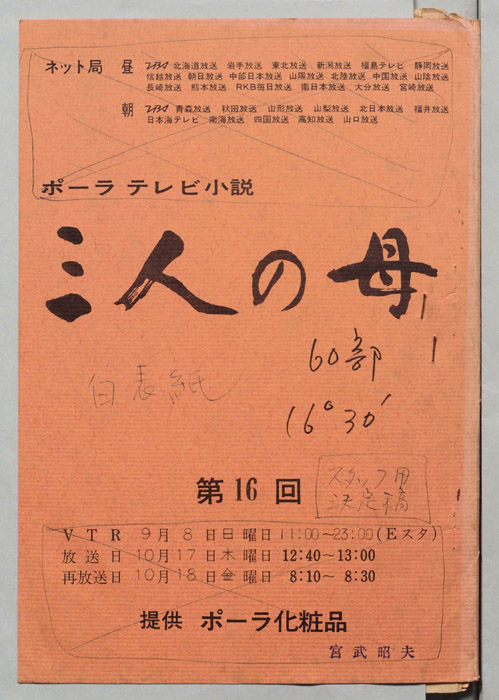 ネット局 昼 TBS 北海道放送 岩手放送 東北放送 新潟放送 福島テレビ 静岡放送
信越放送 朝日放送 中部日本放送 山陽放送 北陸放送 中国放送 山陰放送
長崎放送 熊本放送 RKB毎日放送 南日本放送 大分放送 宮崎放送
朝 TBS 青森放送 秋田放送 山形放送 山梨放送 北日本放送 福井放送
日本海テレビ 南海放送 四国放送 高知放送 山口放送
ポーラ テレビ小説
三人の母
60部
白表紙
16°30′
スタッフ用
決定稿
第16回
VTR 9月8日日曜日 11:00~23:00(Eスタ)
放送日 10月17日木曜日 12:40~13:00
再放送日 10月18日金曜日 8:10~8:30
提供 ポーラ化粧品
宮武昭夫